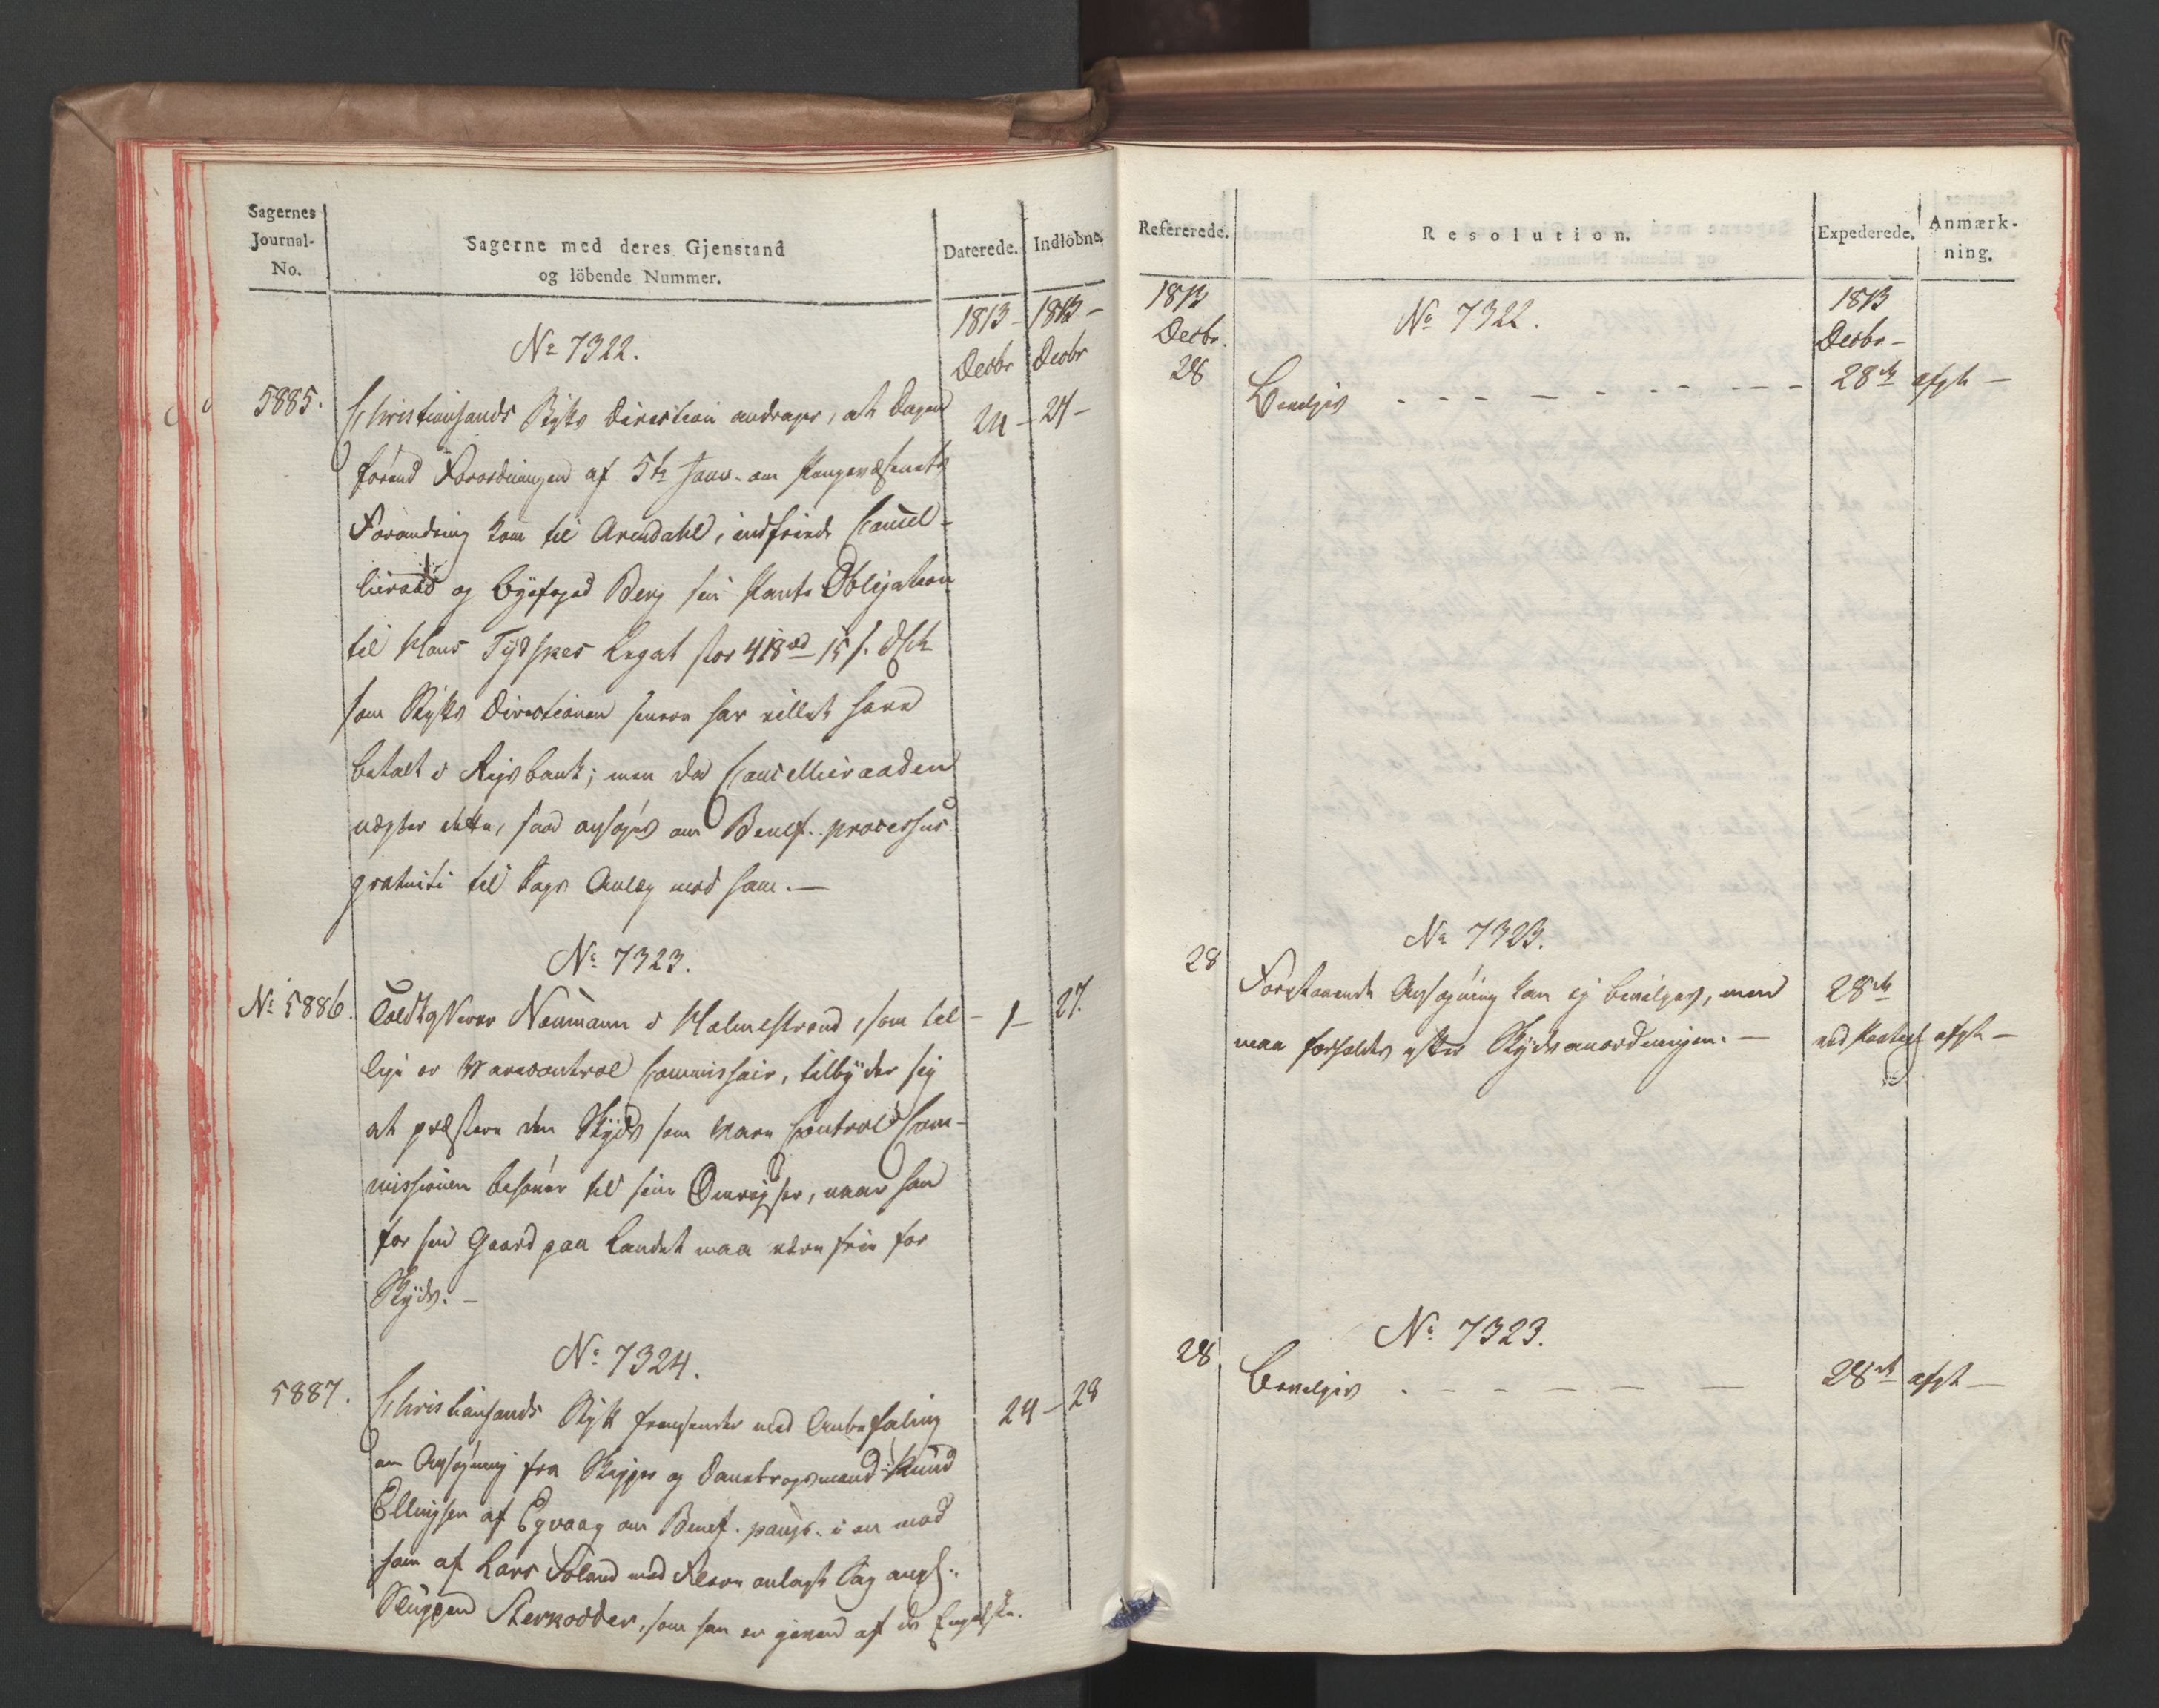 Sagernes
Journal-
No.
Sagerne med deres Gjenstand
og löbende Nummer.
Daterede.
Indlöbne.
1813 - 1813 -
Decbr Decbr
No 7322.
5885. Christiansands Stifts Direction andrager, at dagen 24 - 27 -
förend Forordningen af 5te Janv. om Pengevæsenets
Forandring kom til Arendahl, indfriede Cancel-
lieraad og Byefoged Berg sin Pante Obligation
til Hans Tydskes Legat stor 418 rd 15 s. d. C.
som Stifts Directionen senere har villet have
betalt i Rigsbank; men da Cancellieraaden
nægter dette, saa ansøges om Benef. processus
gratuiti til Sags Anlæg mod ham. —
No 7323.
No 5886. Toldkasserer Neumann i Holmestrand, som til- 1 - 27.
lige er Varecontrol Commissair, tilbyder sig
at præstere den Skyds som Vare Control Com-
missionen behøver til sine Omrejser, naar han
for sin Gaard paa Landet maa være frie for
Skyds. —
No 7324.
5887. Christiansands Stift fremsender med Anbefaling 24 - 28
en Ansøgning fra Skipper og Dannebrogsmand Knud
Ellingsen af Egvaag om Benef. paup. i en mod
ham af Lars Foland med Flere anlagt Sag ang.
Sluppen Sterkodder, som han er given af de Engelske.
Refererede.
Resolution.
Expederede.
Anmærk-
ning.
1813 1813
Decbr. Decbr -
No 7322.
28 Bevilges - - - - - - - - 28de afgk -
No 7323.
28 Forestaaende Ansøgning kan ej bevilges, men 28de
maa forholdes efter Skydsanordningen. — afgk -
No 7323.
28 Bevilges . - - - - - - 28de afgk -